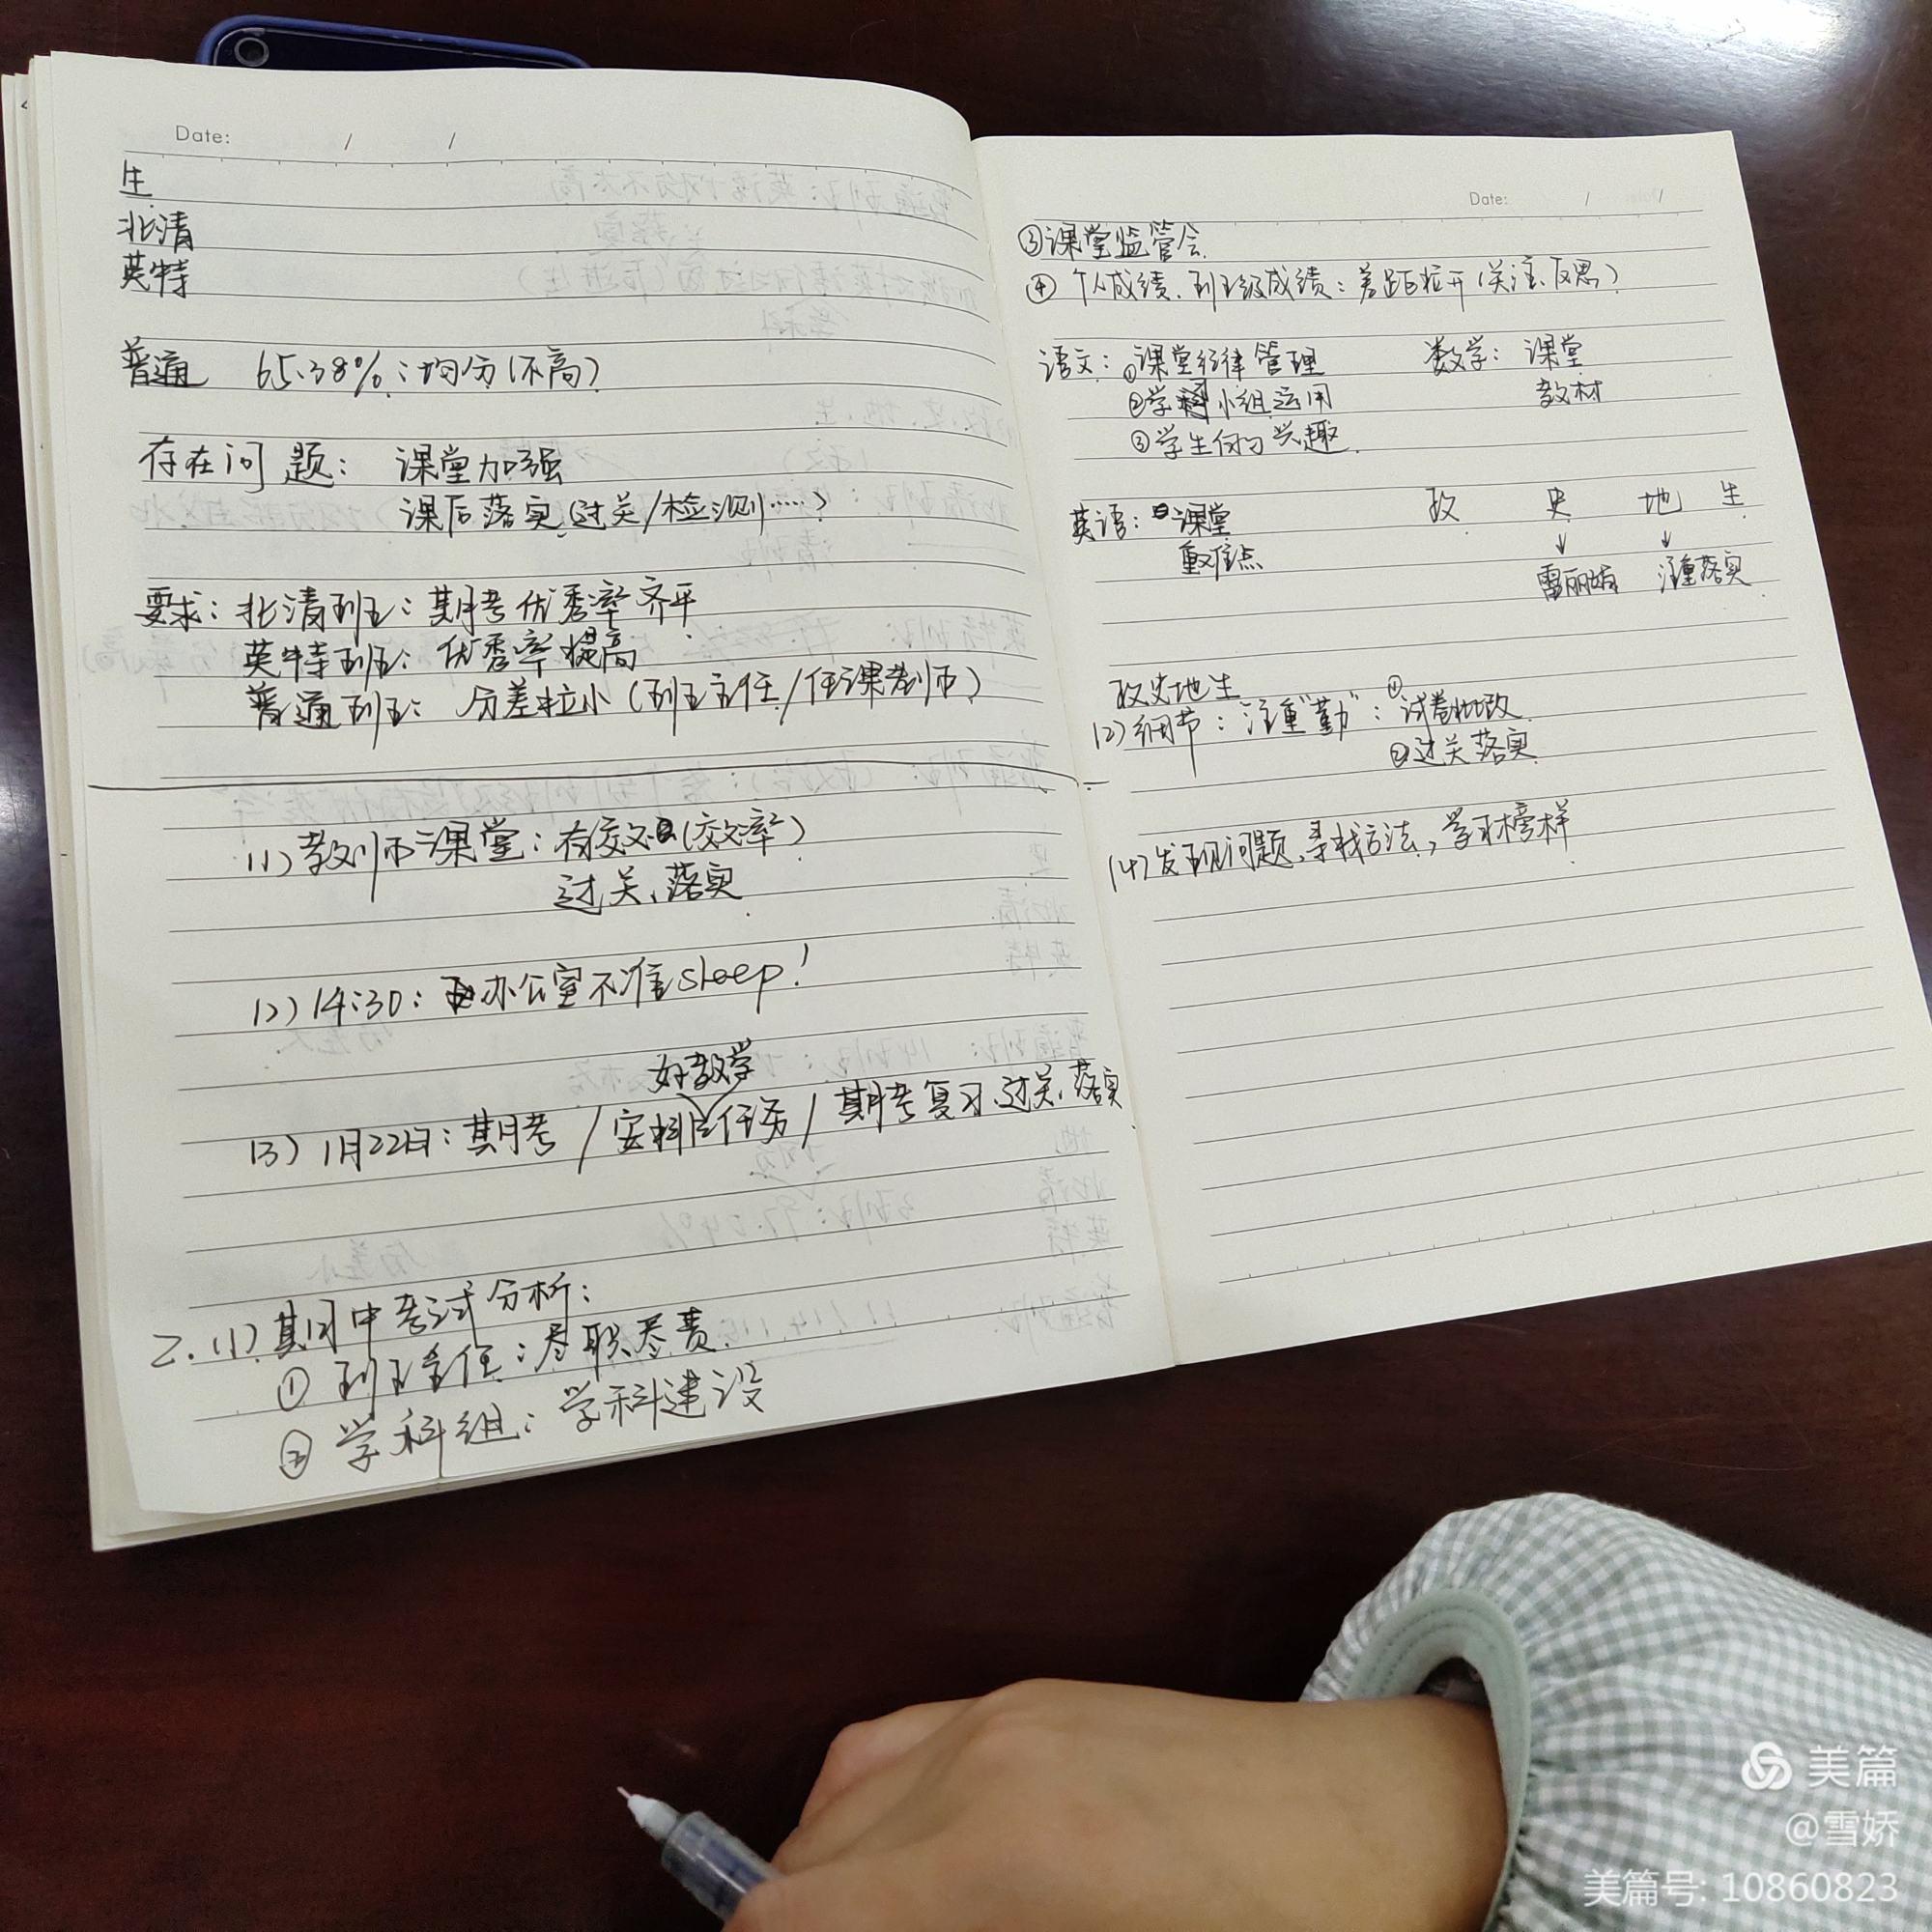 Date: / /
生
北清
英特
普通 65.38%:均分(不高)
存在问题: 课堂加强
课后落实(过关/检测……)
要求:北清班:期考优秀率齐平
英特班:优秀率提高
普通班:分差拉小(班主任/任课教师)
(1)教师课堂:有效(效率)
过关、落实
(2)14:30:办公室不准sleep!
好教学
(3)1月22日:期考/安排任务/期考复习、过关、落实
二.(1)期中考试分析:
①班主任:尽职尽责.
②学科组:学科建设
Date: / /
③课堂监管会
④个人成绩、班级成绩:差距拉开(关注、反思)
语文:①课堂纪律管理 数学:课堂
②学习小组运用 教材
③学生的兴趣
英语:课堂 政 史 地 生
重难点 ↓ ↓
雷丽娟 注重落实
政史地生
(2)细节:注重"勤":①试卷批改
②过关落实
(4)发现问题,寻找方法,学习榜样
美篇
@雪娇
美篇号: 10860823